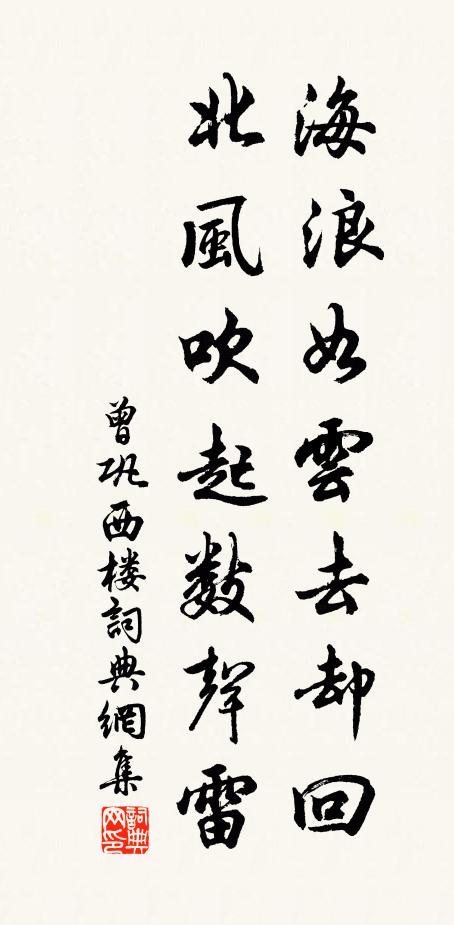 海浪如雲去却回
北風吹起數聲雷
曾巩西楼詞典網集
詞典網印